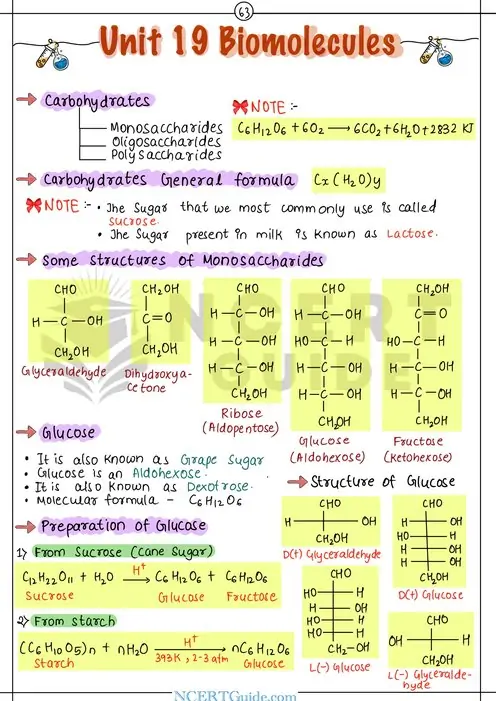 63
Unit 19 Biomolecules
→ Carbohydrates
Monosaccharides
Oligosaccharides
Polysaccharides
NOTE :-
C6H12O6 + 6O2 → 6CO2 + 6H2O + 2832 KJ
→ Carbohydrates General formula Cx(H2O)y
NOTE :- • The Sugar that we most commonly use is called
sucrose.
• The Sugar present in milk is known as Lactose.
→ Some structures of Monosaccharides
CHO
H—C—OH
CH2OH
Glyceraldehyde
CH2OH
C=O
CH2OH
Dihydroxya-
cetone
CHO
H—C—OH
H—C—OH
H—C—OH
CH2OH
Ribose
(Aldopentose)
CHO
H—C—OH
HO—C—H
H—C—OH
H—C—OH
CH2OH
Glucose
(Aldohexose)
CH2OH
C=O
HO—C—H
H—C—OH
H—C—OH
CH2OH
Fructose
(ketohexose)
NCERT
GUIDE
→ Glucose
• It is also known as Grape Sugar
• Glucose is an Aldohexose.
• It is also known as Dextrose.
• Molecular formula - C6H12O6
→ Preparation of Glucose
1) From Sucrose (Cane Sugar)
C12H22O11 + H2O H+ → C6H12O6 + C6H12O6
Sucrose Glucose Fructose
2) From starch
(C6H10O5)n + nH2O H+ → nC6H12O6
393K, 2-3 atm
Starch Glucose
→ Structure of Glucose
CHO
H OH
CH2OH
D(+) Glyceraldehyde
CHO
H OH
HO H
H OH
H OH
CH2OH
D(+) Glucose
CHO
HO H
H OH
HO H
HO H
CH2-OH
L(-) Glucose
CHO
OH H
CH2OH
L(-) Glyceralde-
hyde
NCERTGuide.com